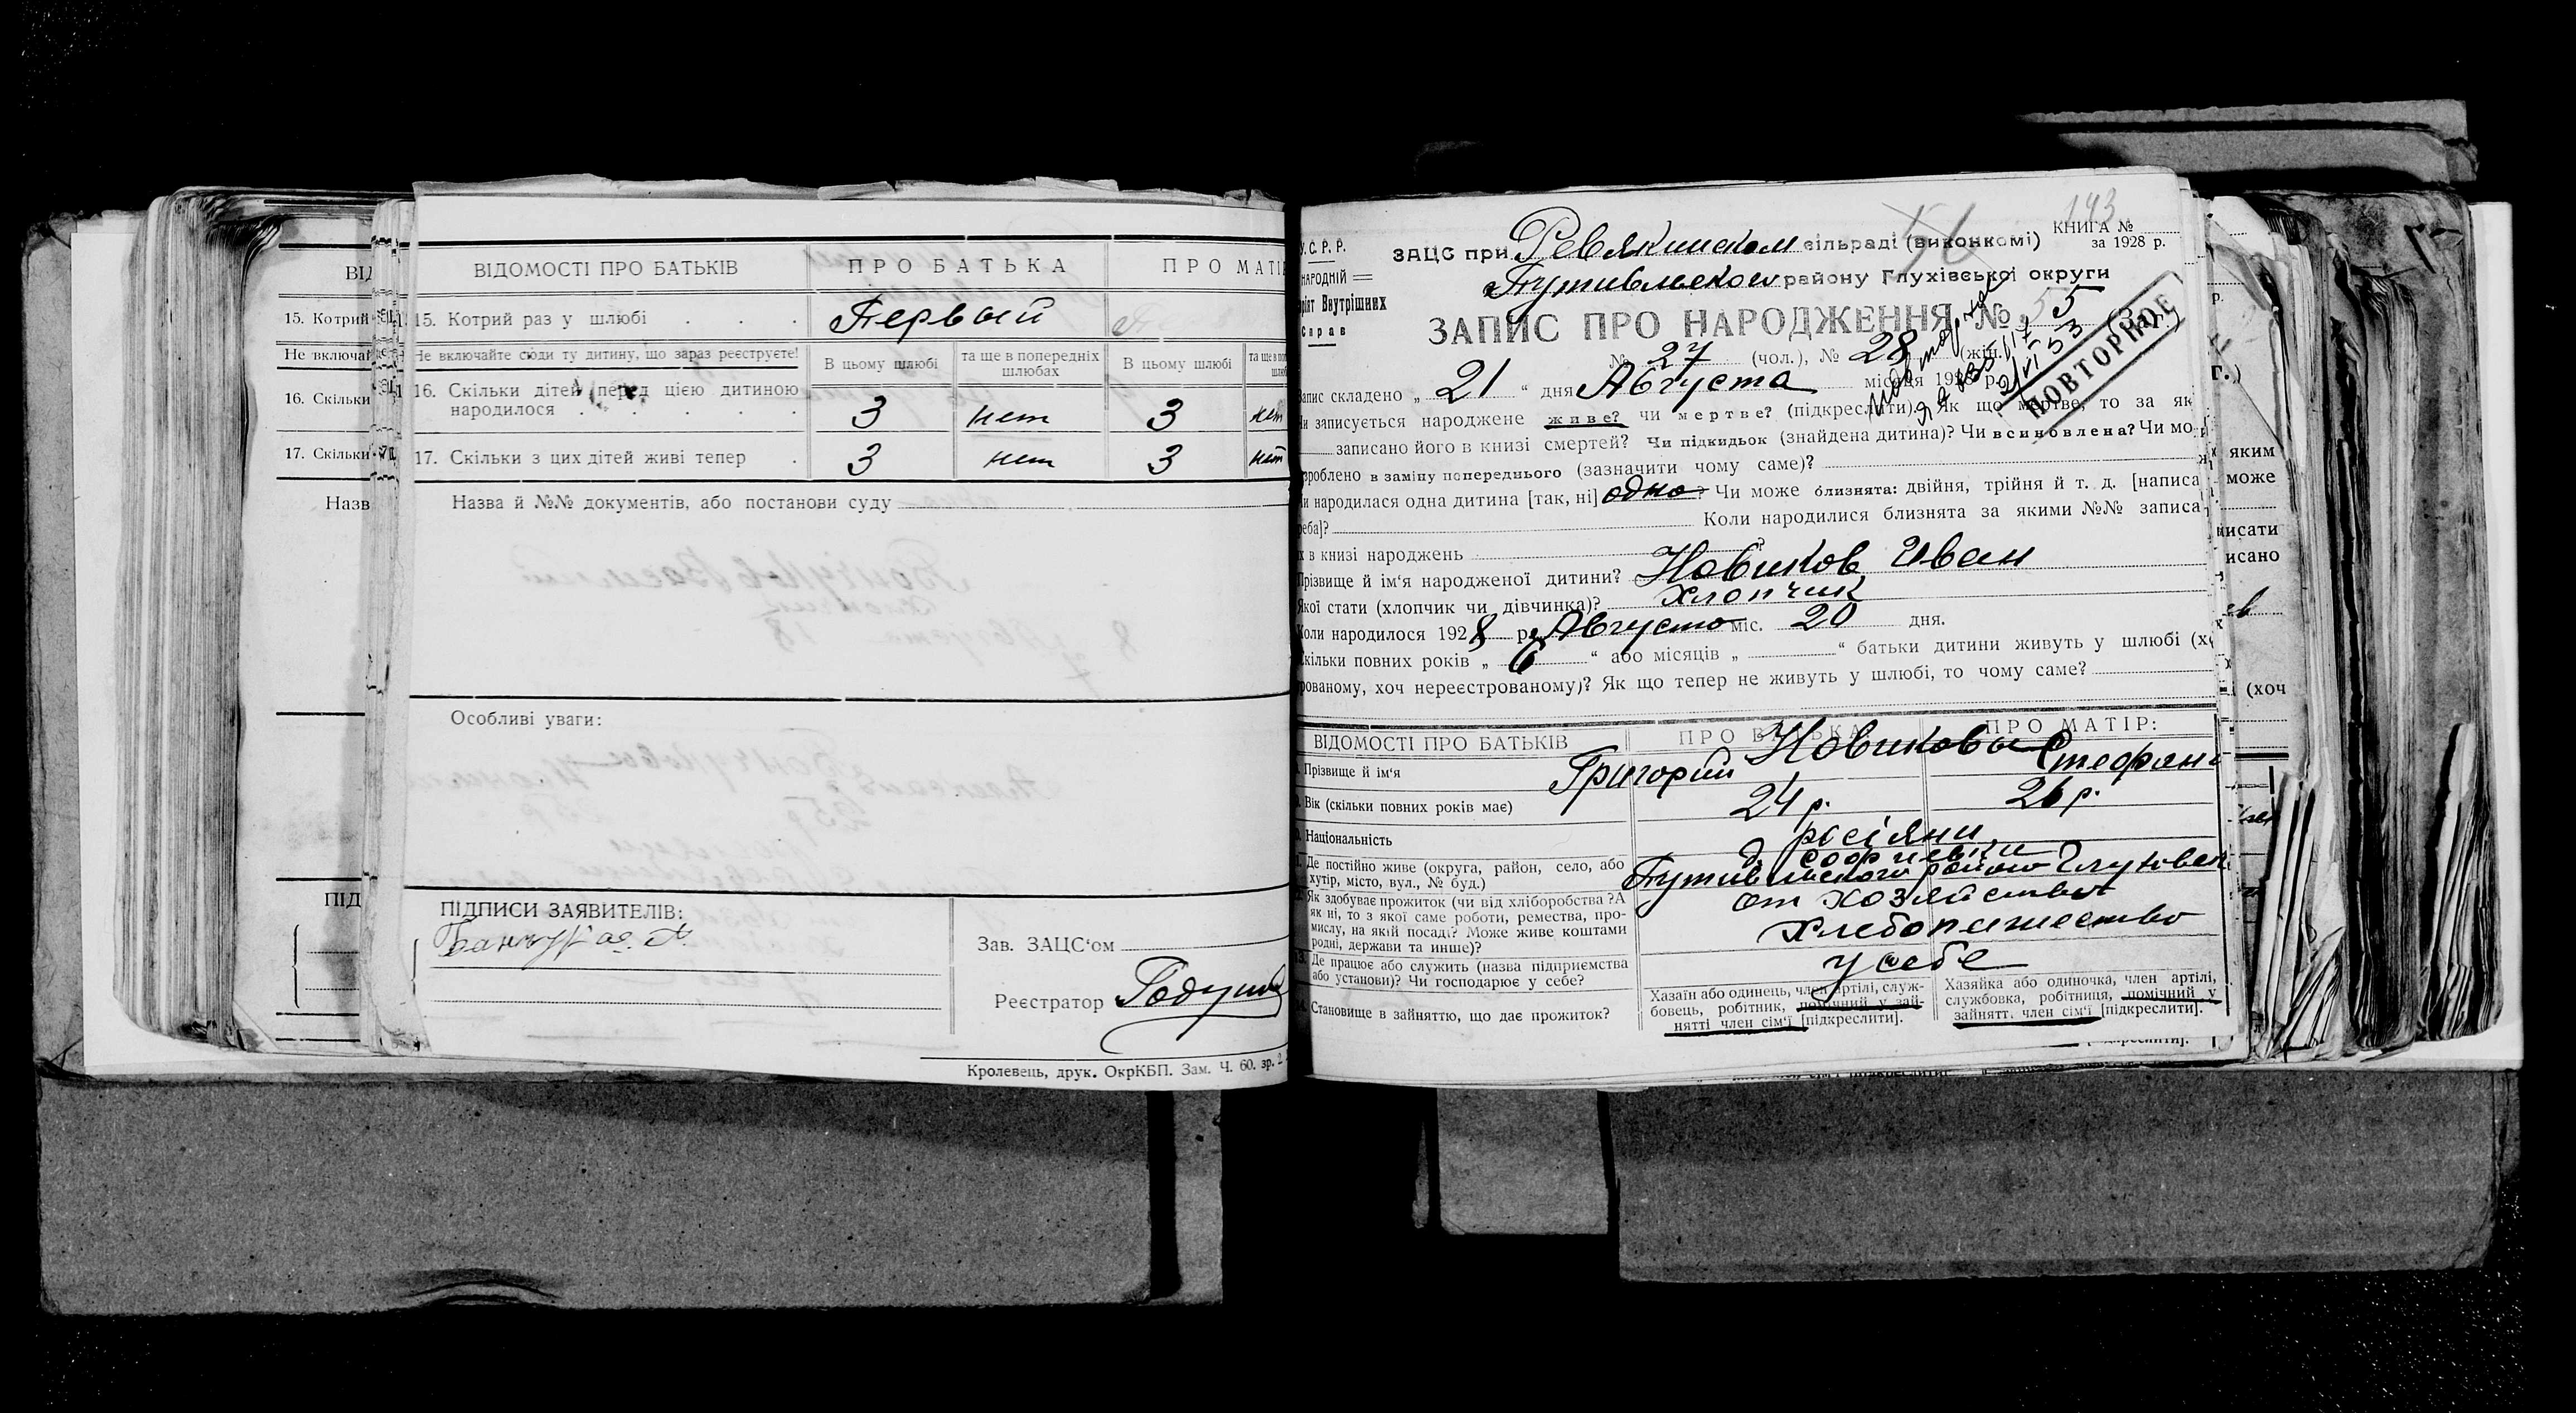 ВІДОМОСТІ ПРО БАТЬКІВ
ПРО БАТЬКА
ПРО МАТІ
15. Котрий раз у шлюбі . . .
Первый
Не включайте сюди ту дитину, що зараз реєструєте!
В цьому шлюбі
та ще в попередніх шлюбах
В цьому шлюбі
16. Скільки дітей перед цією дитиною
народилося . . . . .
3 нет 3 нет
17. Скільки з цих дітей живі тепер .
3 нет 3 нет
Назва й №№ документів, або постанови суду
Особливі уваги:
ПІДПИСИ ЗАЯВИТЕЛІВ:
Зав. ЗАЦС'ом
Реєстратор
Кролевець, друк. ОкрКБП. Зам. Ч. 60. зр. 2
15. Котрий
Не включай
16. Скільки
17. Скільки
Назв
ПІД
143
КНИГА №
за 1928 р.
У.С.Р.Р.
НАРОДНІЙ
ріят Внутрішних
Справ
ЗАЦС при Ревякинском сільраді (виконкомі)
Путивльском району Глухівської округи
ЗАПИС ПРО НАРОДЖЕННЯ № 55
ПОВТОРНОЕ
№ 27 (чол.), № 28 (жін.)
Запис складено „ 21 “ дня Августа місяця 1928 р.
Чи записується народжене живе? чи мертве? (підкреслити). Як що мертве, то за як
записано його в книзі смертей? Чи підкидьок (знайдена дитина)? Чи всиновлена? Чи мо
зроблено в заміну попереднього (зазначити чому саме)?
Чи народилася одна дитина [так, ні] одно? Чи може близнята: двійня, трійня й т. д. [написа
реба]? Коли народилися близнята за якими №№ записа
х в книзі народжень ?
Прізвище й ім'я народженої дитини? Новиков Иван
Якої стати (хлопчик чи дівчинка)? Хлопчик
Коли народилося 1928 р. Августа міс. 20 дня.
Скільки повних років „ 6 “ або місяців „ “ батьки дитини живуть у шлюбі (х
рованому, хоч нереєстрованому)? Як що тепер не живуть у шлюбі, то чому саме?
ВІДОМОСТІ ПРО БАТЬКІВ
ПРО БАТЬКА
ПРО МАТІР:
Прізвище й ім'я
Новиковы
Григорий
Стефани
Вік (скільки повних років має)
24 р.
26 р.
Національність
росіяни
Де постійно живе (округа, район, село, або
хутір, місто, вул., № буд.)
Путивльского району Глуховск
Як здобуває прожиток (чи від хліборобства? А
як ні, то з якої саме роботи, ремества, про-
мислу, на якій посаді? Може живе коштами
родні, держави та инше)?
от хозяйства
Хлебопашество
Де працює або служить (назва підприємства
або установи)? Чи господарює у себе?
у себе
Становище в зайняттю, що дає прожиток?
Хазаїн або одинець, член артілі, служ-
бовець, робітник, помічний у зай-
нятті член сім'ї [підкреслити].
Хазяйка або одиночка, член артілі,
службовка, робітниця, помічний у
зайнятті член сім'ї [підкреслити].
яким
може
писати
исано
(хоч